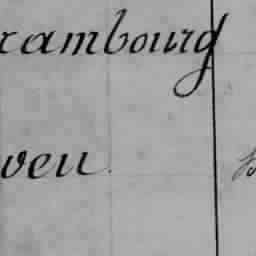 xambourg
veu